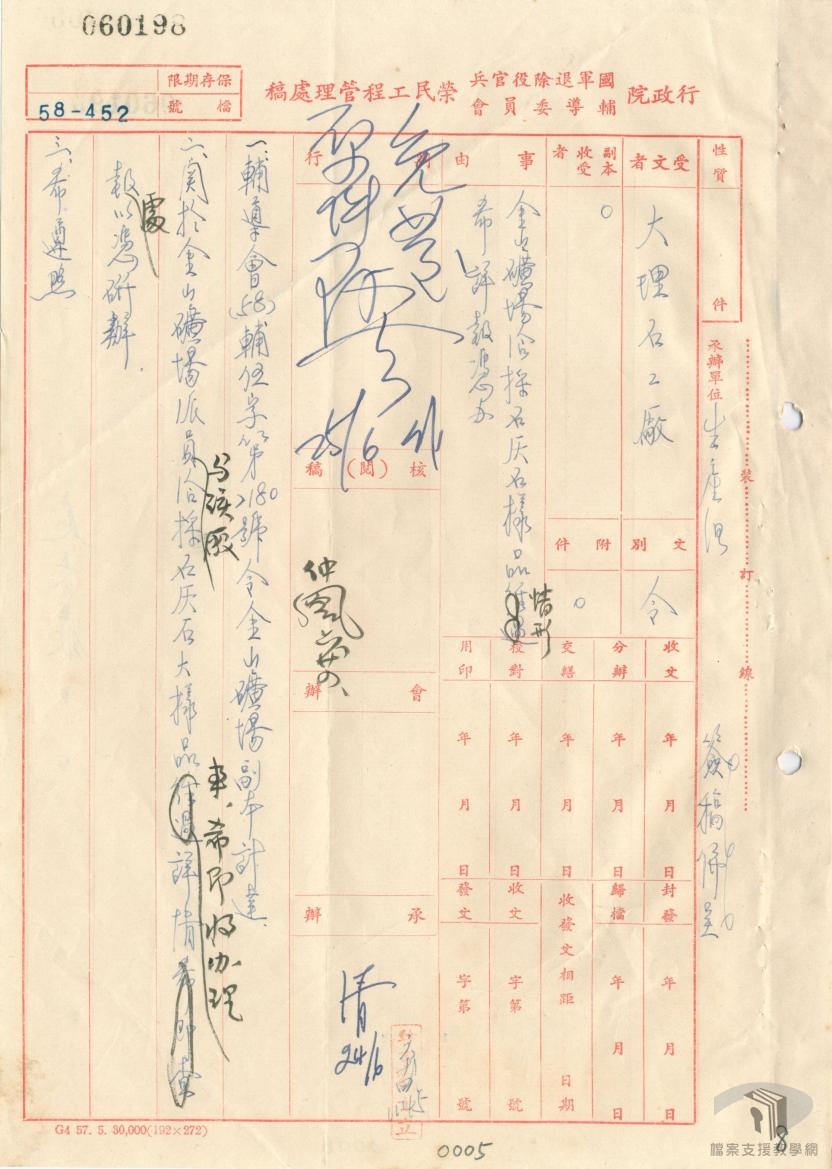 060198
行政院
國軍退除役官兵
輔導委員會
榮民工程管理處稿
保存期限
檔號
58-452
性質
件
承辦單位
生產組
裝訂線
簽稿併呈
受文者
大理石工廠
文別
令
副本收受者
附件
事由
金山礦場洽採石灰石樣品
情形
希詳報憑办
行
核(閱)稿
25/6
會辦
承辦
清
24/6
一、輔導會(58)輔伍字第2180號令金山礦場副本計達
二、關於金山礦場派員洽採石灰石大樣品
詳情希即
事,希即將办理
報處以憑研辦.
三、希遵照
收文
年月日
分辦
年月日
交繕
年月日
校對
年月日
用印
年月日
封發
年月日
歸檔
年月日
收發文相距
日期
收文
字第
號
發文
字第
號
G4 57. 5. 30,000(192×272)
0005
8
檔案支援教學網